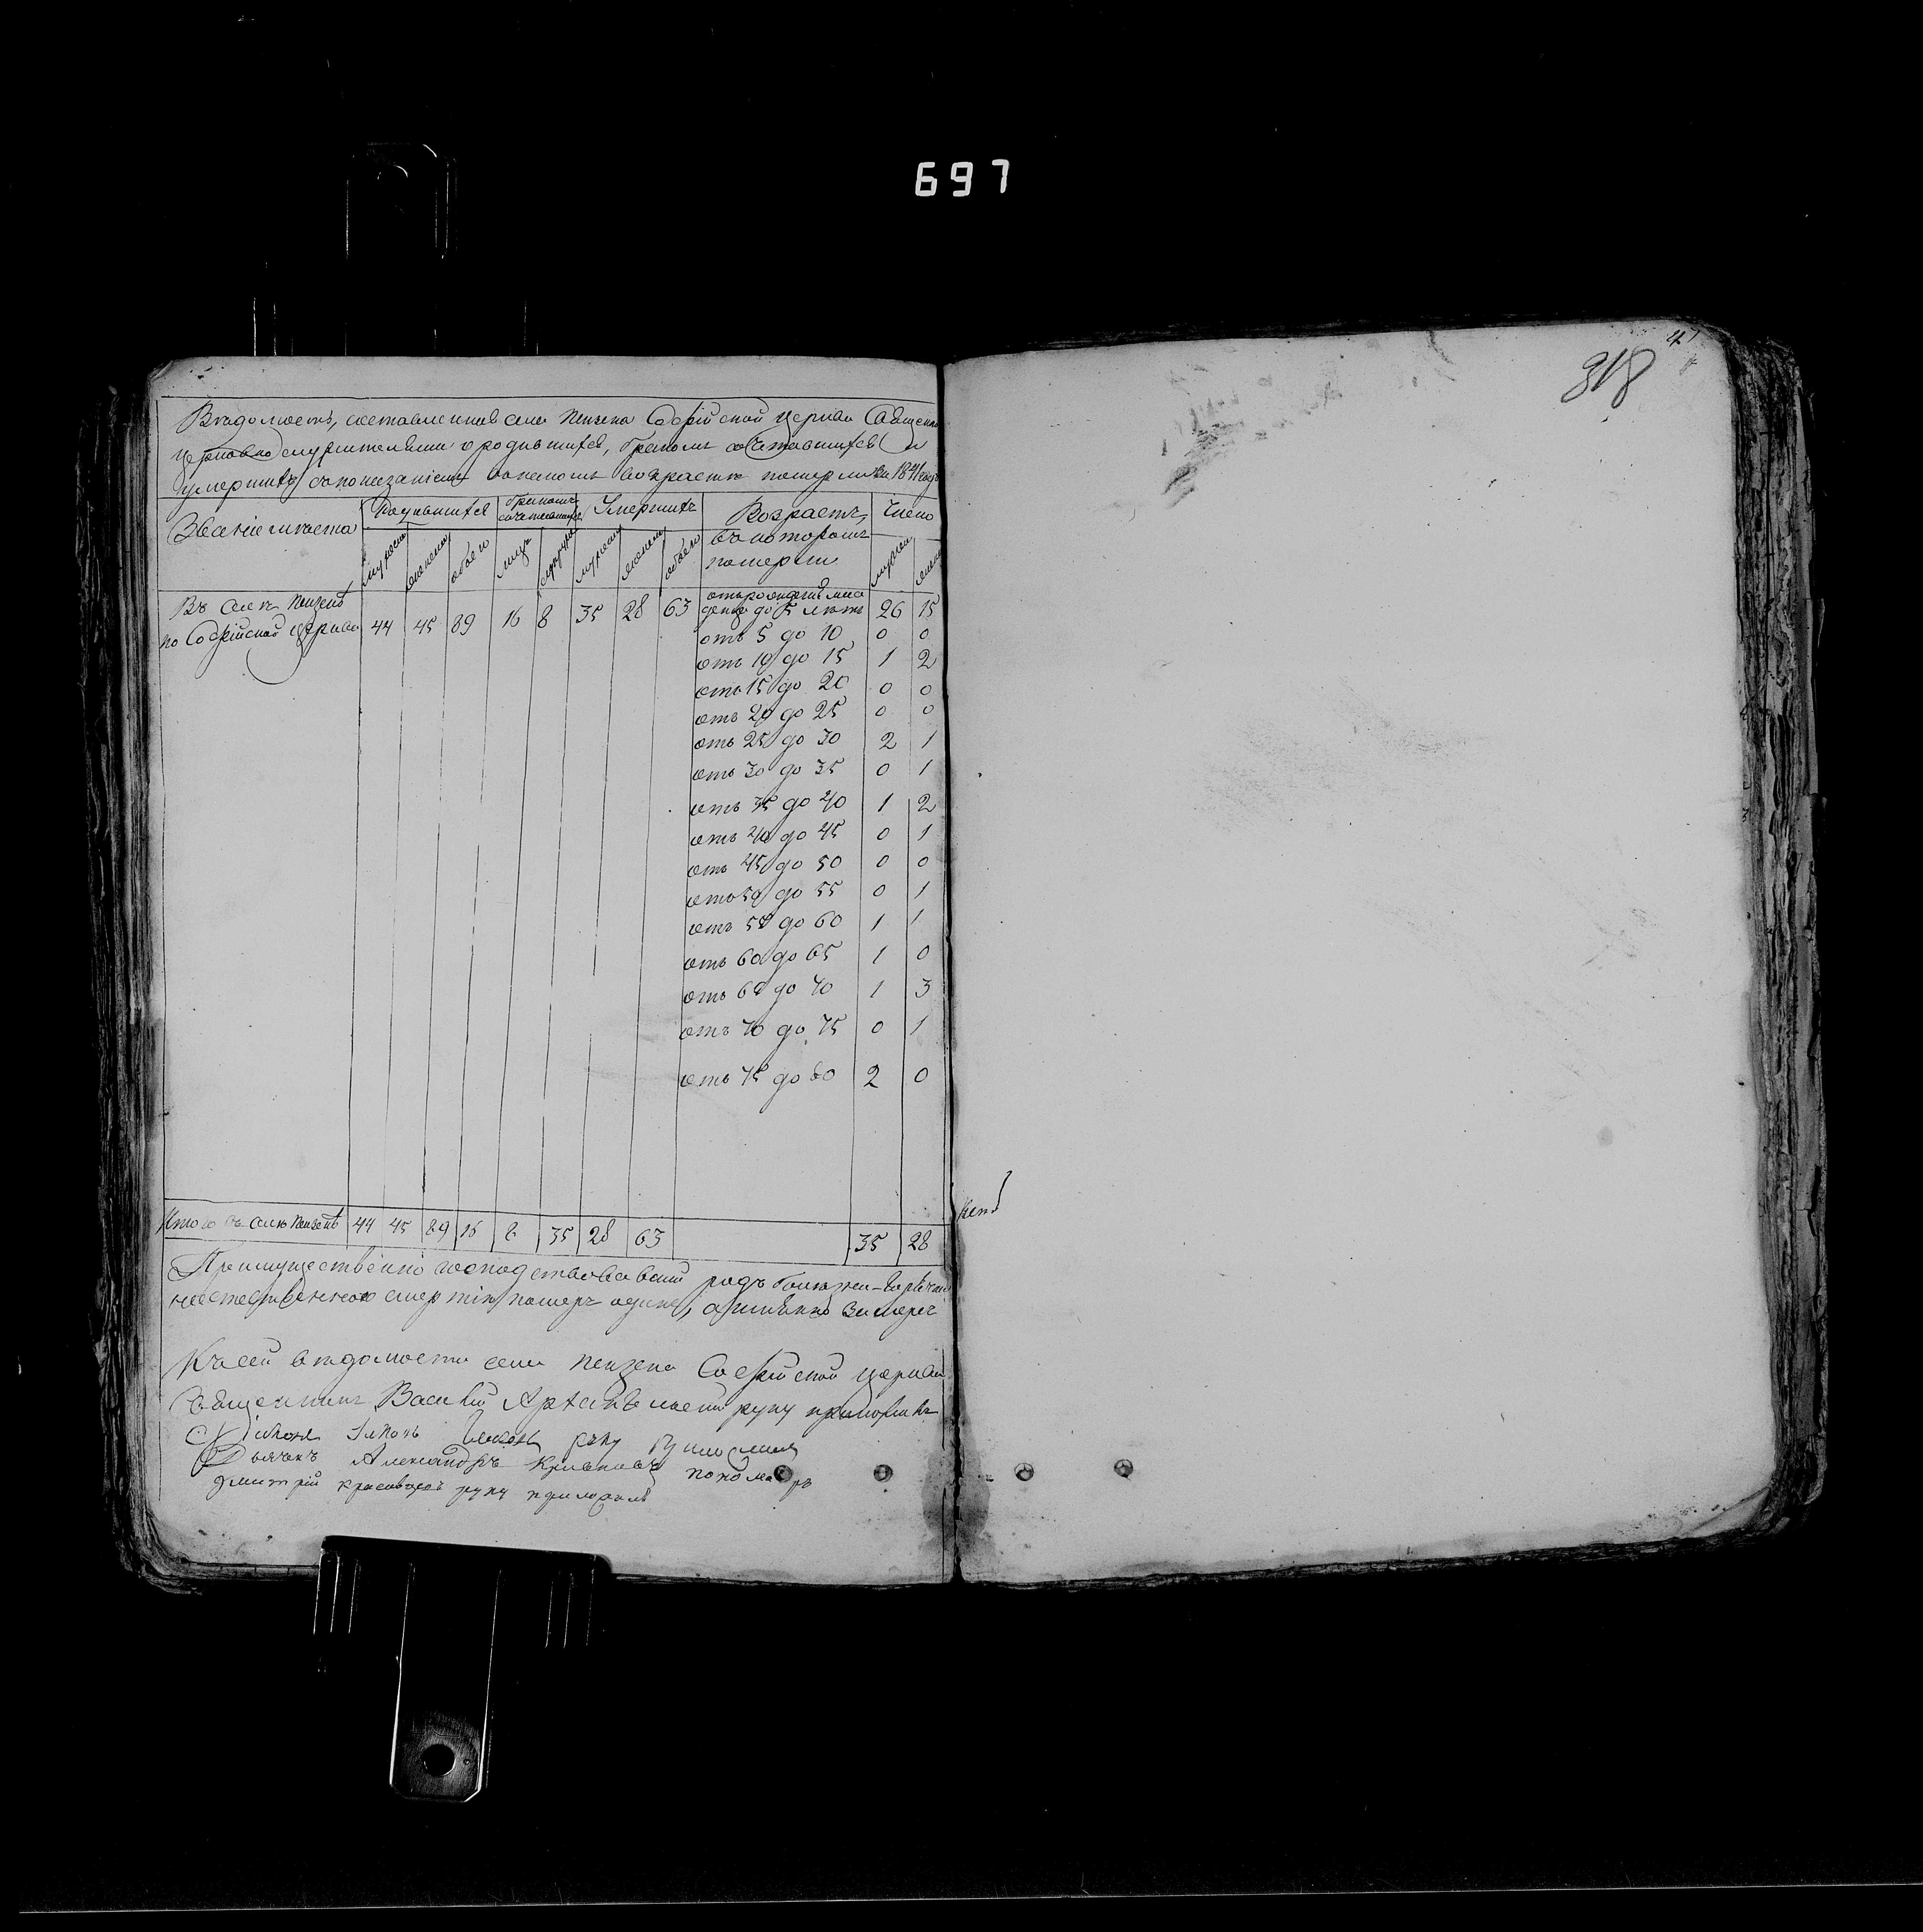 697
47
318
Вѣдомость, составленная села Пензена Софійской церкви Священно
церковно служителями о родившихся, бракомъ сочетавшихся и
умершихъ съ показаніемъ въ какомъ возрастѣ померли въ 1841 годѣ
Званіе мѣста
Родившихся
Бракомъ сочетавшихся
Умершихъ
Возрастъ, въ которомъ померли
Число
мужеска женска обоего лицъ мужеска женска обоего
Въ селѣ Пензенѣ
по Софійской церкви 44 45 89 16 8 35 28 63
до 5 лѣтъ 26 15
отъ 5 до 10 0 0
отъ 10 до 15 1 2
отъ 15 до 20 0 0
отъ 20 до 25 0 0
отъ 25 до 30 2 1
отъ 30 до 35 0 1
отъ 35 до 40 1 2
отъ 40 до 45 0 1
отъ 45 до 50 0 0
отъ 50 до 55 0 1
отъ 55 до 60 1 1
отъ 60 до 65 1 0
отъ 65 до 70 1 3
отъ 70 до 75 0 1
отъ 75 до 80 2 0
Итого въ селѣ Пензенѣ 44 45 89 16 8 35 28 63 35 28
Преимущественно господствовавшій родъ болѣзни
смертію померъ одинъ, а имянно
К сей вѣдомости села Пензена Софійской церкви
Священникъ Василій руку приложилъ
руку приложилъ
Дьячекъ Александръ пономарь
Дмитрій руку приложилъ